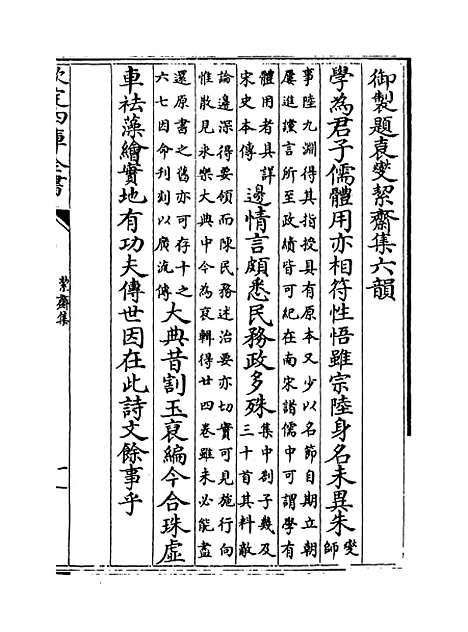 御製題袁燮絜齋集六韻
學為君子儒體用亦相符性悟雖宗陸身名未異朱
燮
師
事陸九淵得其指授具有原本又少以名節自期立朝
屢進讜言所至政績皆可紀在南宋諸儒中可謂學有
體用者具詳
宋史本傳
邊情言頗悉民務政多殊
集中劄子幾及
三十首其料敵
論邊深得要領而陳民務述治要亦切實可見施行向
惟散見永樂大典中今為裒輯得廿四卷雖未必能盡
還原書之舊亦可存十之
六七因命刊刻以廣流傳
大典昔割玉裒編今合珠虛
車祛藻繪實地有功夫傳世因在此詩文餘事乎
欽定四庫全書
絜齋集
一